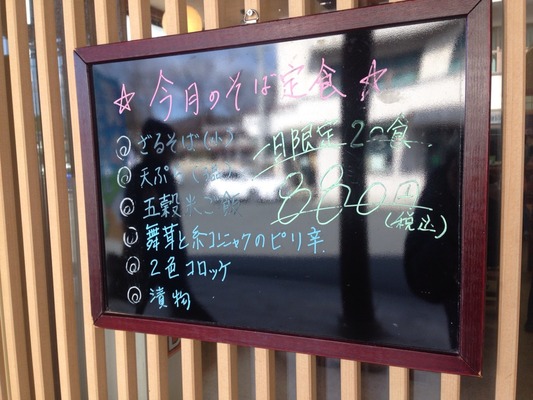 ☆今月のそば定食☆
◎ざるそば(小)
一日限定20食
◎天ぷら
880円
(税込)
◎五穀米ご飯
◎舞茸と糸コンニャクのピリ辛
◎2色コロッケ
◎漬物